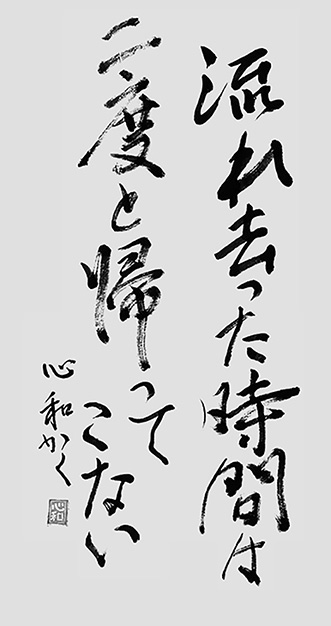 流れ去った時間は
二度と帰ってこない
心和かく